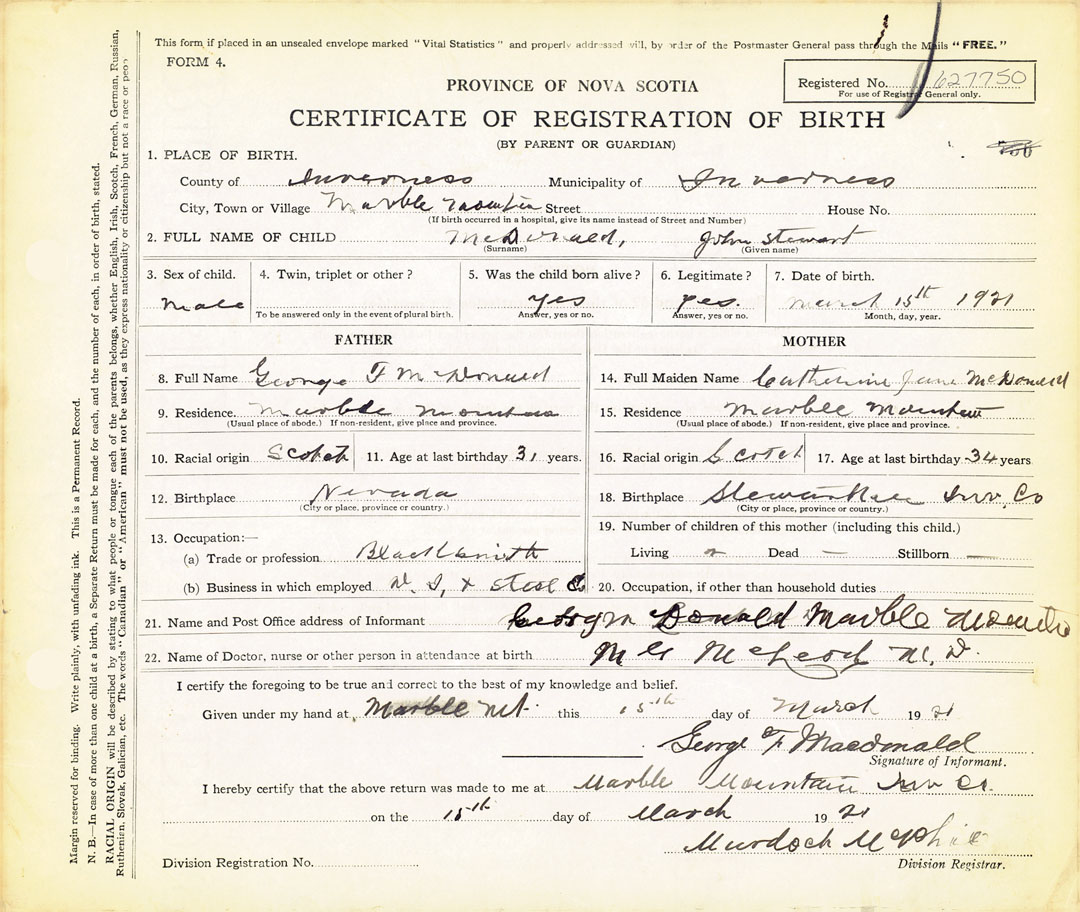 This form if placed in an unsealed envelope marked "Vital Statistics" and properly addressed will, by order of the Postmaster General pass through the Mails "FREE."
FORM 4.
Registered No. 627750
For use of Registrar General only.
PROVINCE OF NOVA SCOTIA
CERTIFICATE OF REGISTRATION OF BIRTH
(BY PARENT OR GUARDIAN)
1. PLACE OF BIRTH.
County of Inverness Municipality of Inverness
City, Town or Village Marble Mountain Street House No.
(If birth occurred in a hospital, give its name instead of Street and Number)
2. FULL NAME OF CHILD McDonald, John Stewart
(Surname) (Given name)
3. Sex of child. 4. Twin, triplet or other? 5. Was the child born alive? 6. Legitimate? 7. Date of birth.
Male yes yes. March 15th 1921
To be answered only in the event of plural birth. Answer, yes or no. Answer, yes or no. Month, day, year.
FATHER MOTHER
8. Full Name George F McDonald 14. Full Maiden Name Catherine Jane McDonald
9. Residence. Marble Mountain 15. Residence Marble Mountain
(Usual place of abode.) If non-resident, give place and province. (Usual place of abode.) If non-resident, give place and province.
10. Racial origin Scotch 11. Age at last birthday 31 years. 16. Racial origin Scotch 17. Age at last birthday 34 years
12. Birthplace Nevada 18. Birthplace Inv. Co
(City or place, province or country.) (City or place, province or country.)
13. Occupation:— 19. Number of children of this mother (including this child.)
(a) Trade or profession Blacksmith Living Dead — Stillborn —
(b) Business in which employed N. S, & Steel Co 20. Occupation, if other than household duties
21. Name and Post Office address of Informant Donald Marble Mountain
22. Name of Doctor, nurse or other person in attendance at birth McLeod M. D.
I certify the foregoing to be true and correct to the best of my knowledge and belief.
Given under my hand at Marble Mt. this 15th day of March 1921
George F Macdonald
Signature of Informant.
I hereby certify that the above return was made to me at Marble Mountain Inv Co.
on the 15th day of March 1921
Murdoch McPhie
Division Registrar.
Division Registration No.
Margin reserved for binding. Write plainly, with unfading ink. This is a Permanent Record.
N. B.—In case of more than one child at a birth, a Separate Return must be made for each, and the number of each, in order of birth, stated.
RACIAL ORIGIN will be described by stating to what people or tongue each of the parents belongs, whether English, Irish, Scotch, French, German, Russian,
Ruthenian, Slovak, Galician, etc. The words "Canadian" or "American" must not be used, as they express nationality or citizenship but not a race or people